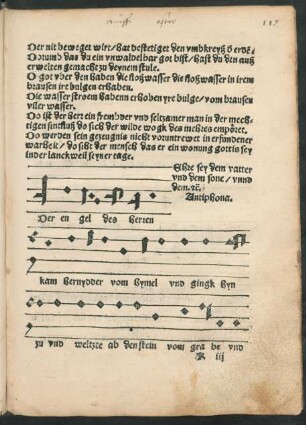 117
Der nit beweget wirt / hat bestetiget den vmbkreyß d erde.
Dorumb das du ein vnwandelbar got bist / hast du den auß
erwelten gemacht zu deynem stule.
O got vber den haben die floßwasser die floßwasser in irem
brausen ire bulgen erhaben.
Die wasserstroem habenn erhoben yre bulge / vom brausen
viler wasser.
Do ist der herr ein frembder vnd seltzamer man in der mech-
tigen sintfluß do sich der wilde wogk des mehres empöret.
Do werden sein gezeugnis nicht voruntrewet in erfundener
warheit / do sihet der mensch das er ein wonung gottis sey
inder lanckweil seyner tage.
Ehre sey dem vatter
vnd dem sone / vnnd
dem. rc.
Antiphona.
Der en gel des herren
kam hernydder vom hymel vnd gingk hyn
zu vnd weltzte ab den stein vom gra be vnd
R iij